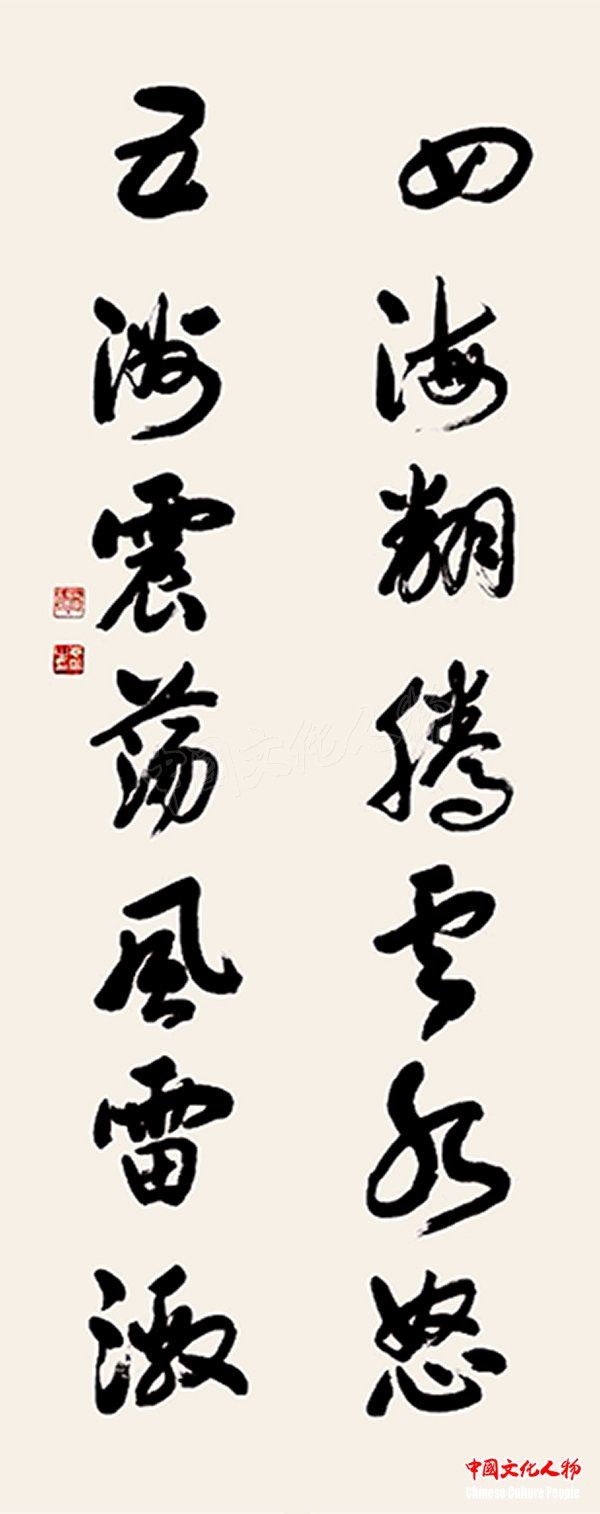 四海翻腾云水怒
五洲震荡風雷激
中國文化人物
中國文化人物
Chinese Culture People